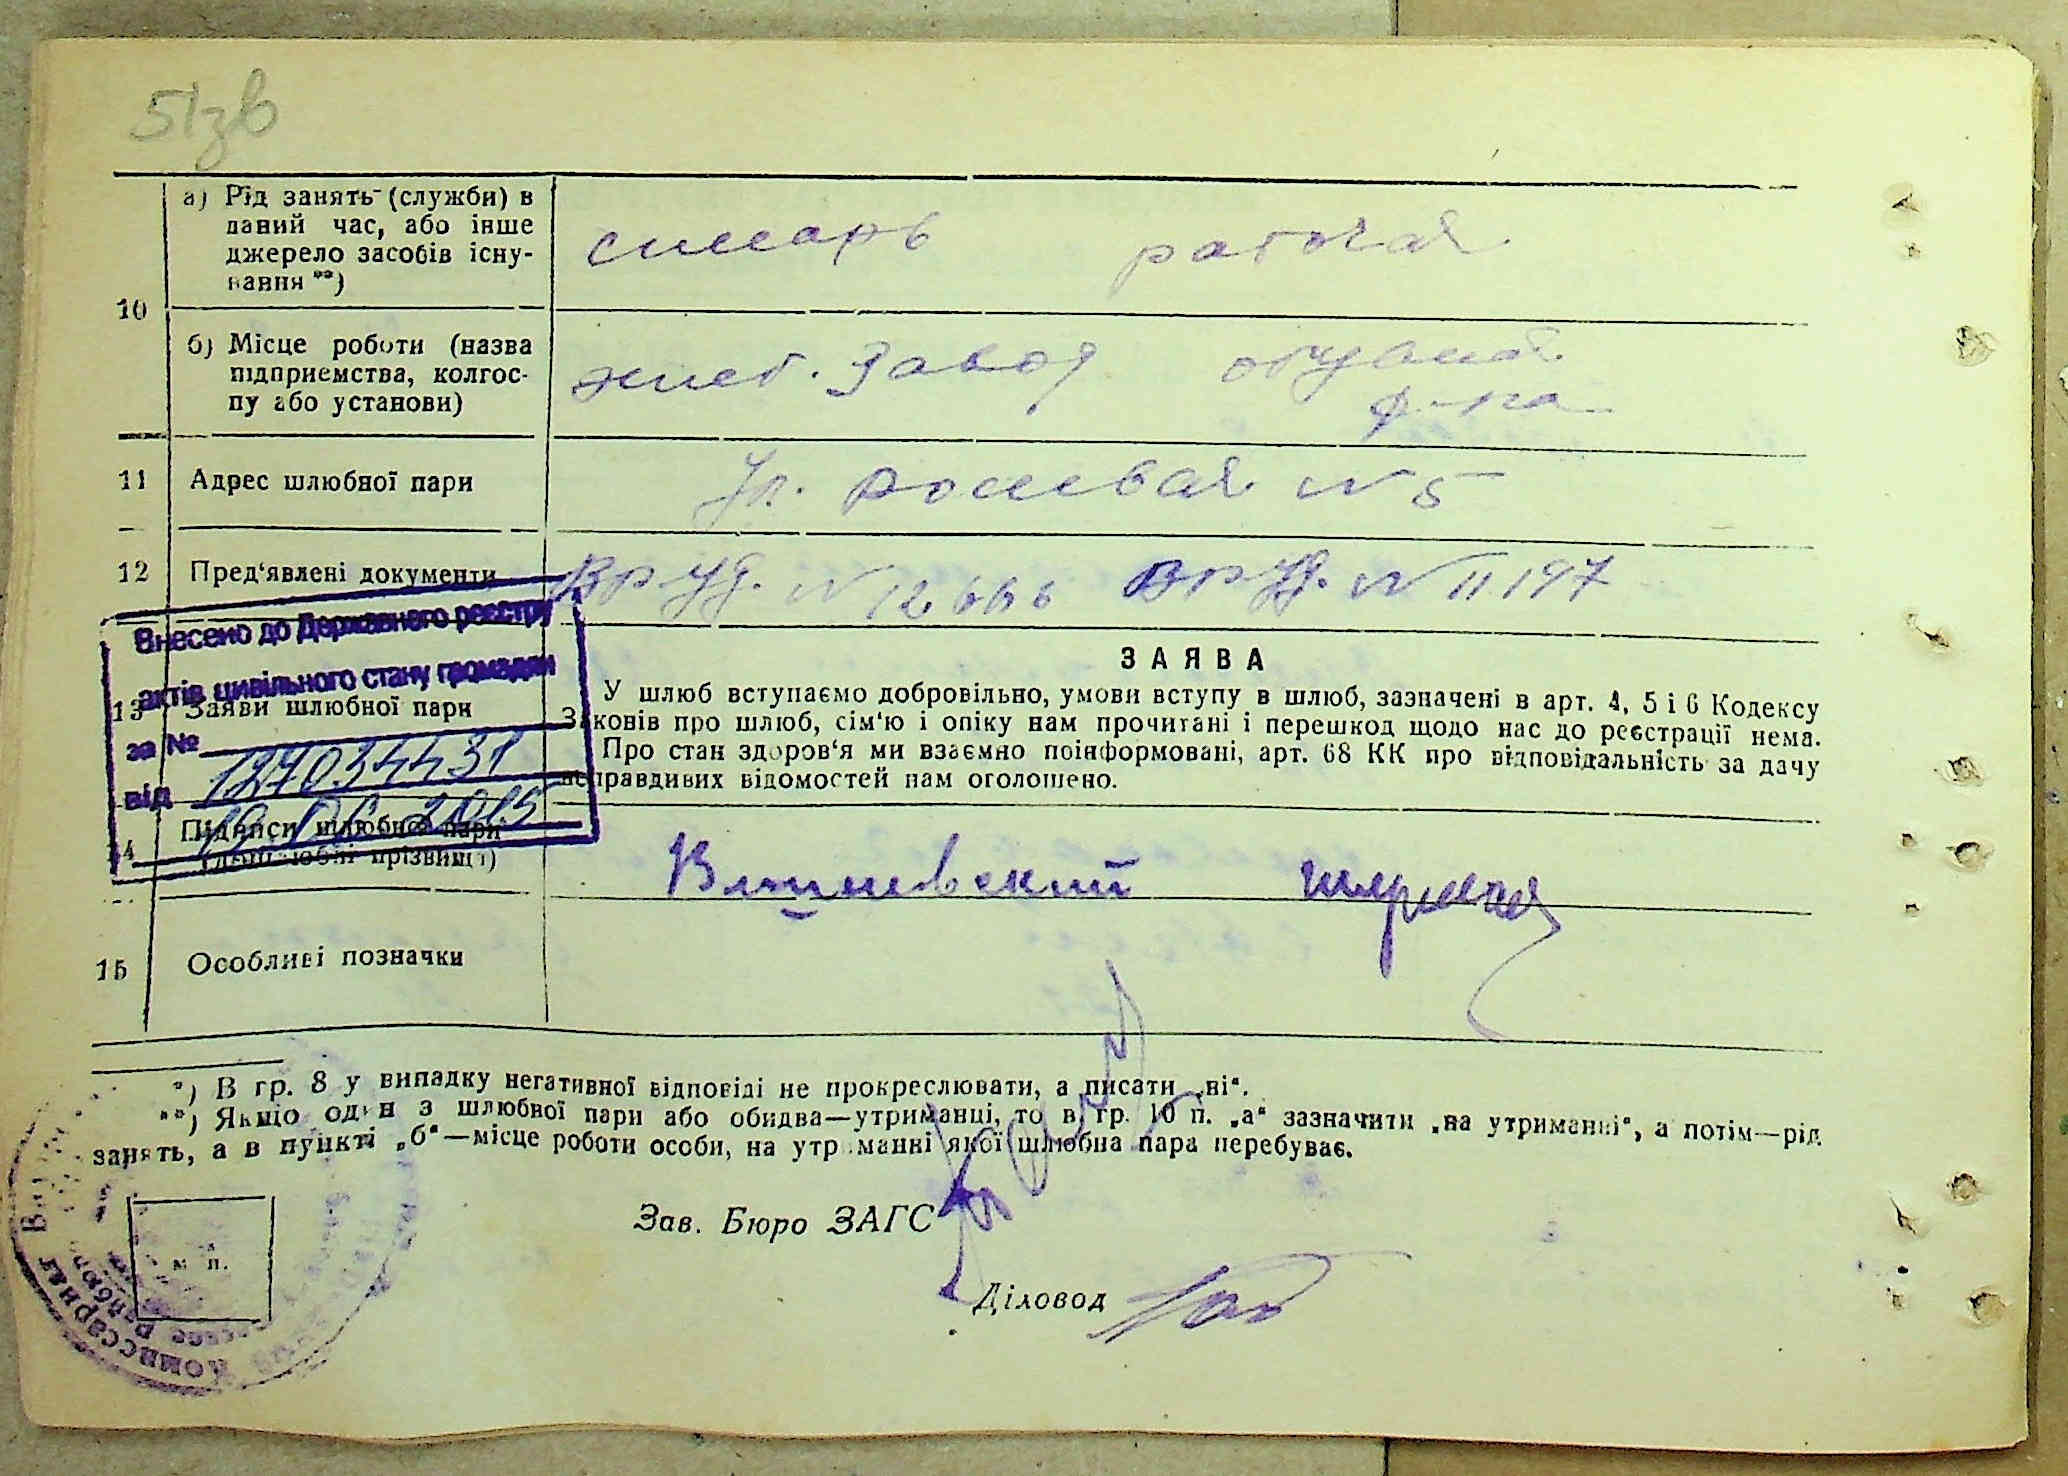 51зв
а) Рід занять (служби) в
даний час, або інше
джерело засобів існу-
вання **)
слесарь рабочая
10
б) Місце роботи (назва
підприємства, колгос-
пу або установи)
завод обувная
ф-ка
11 Адрес шлюбної пари
Ул. №5
12 Пред'явлені документи
Вр уд. № 12666 Вр уд. № 11197
Внесено до Державного реєстру
актів цивільного стану громадян
за № 127034431
від 19 06 2015
13 Заяви шлюбної пари
ЗАЯВА
У шлюб вступаємо добровільно, умови вступу в шлюб, зазначені в арт. 4, 5 і 6 Кодексу
Законів про шлюб, сім'ю і опіку нам прочитані і перешкод щодо нас до реєстрації нема.
Про стан здоров'я ми взаємно поінформовані, арт. 68 КК про відповідальність за дачу
неправдивих відомостей нам оголошено.
14 Підписи шлюбної пари
(дошлюбні прізвища)
15 Особливі позначки
*) В гр. 8 у випадку негативної відповіді не прокреслювати, а писати „ні“.
**) Якщо один з шлюбної пари або обидва—утриманці, то в гр. 10 п. „а“ зазначити „на утриманні“, а потім—рід
занять, а в пункті „б“—місце роботи особи, на утриманні якої шлюбна пара перебуває.
м. п.
Зав. Бюро ЗАГС
Діловод